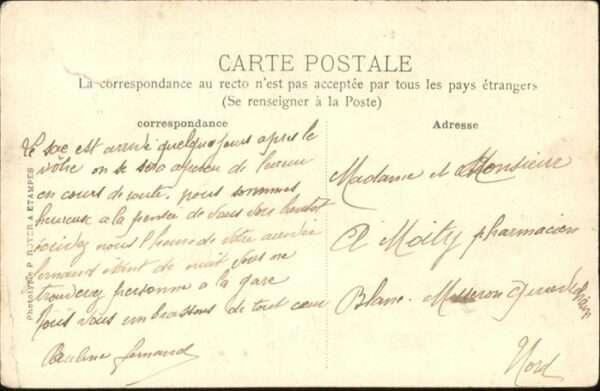 CARTE POSTALE
La correspondance au recto n'est pas acceptée par tous les pays étrangers
(Se renseigner à la Poste)
correspondance
Le sac est arrivé quelques jours apres le
vôtre on se sera aperçu de l'erreur
en cours de route, nous sommes
heureux a la pensée de vous voir bientot
nous l'heure de votre arrivée
fernand étant de nuit vous ne
trouverez personne a la gare
vous embrassons de tout cœur
Pauline fernand
Adresse
Madame et Monsieur
A Moity pharmacien
Blanc. Misseron
Nord
PHOTOTYPIE P. ROYER A ETAMPES